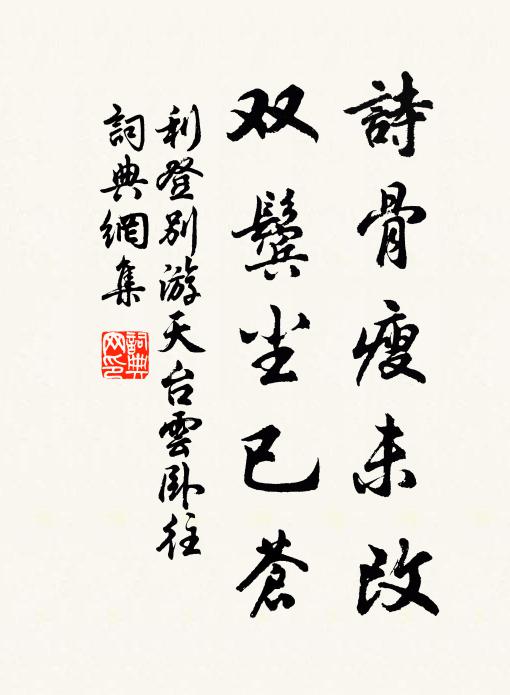 詩骨瘦未改
双鬓尘已蒼
利登别游天台雲卧往
詞典網集
詞典网印